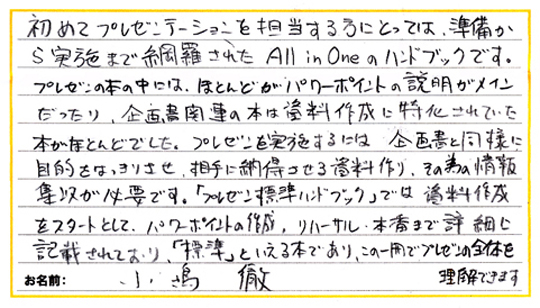 初めてプレゼンテーションを担当する方にとっては、準備か
ら実施まで網羅されたAll in Oneのハンドブックです。
プレゼンの本の中には、ほとんどがパワーポイントの説明がメイン
だったり、企画書関連の本は資料作成に特化されていた
本がほとんどでした。プレゼンを実施するには企画書と同様に
目的をはっきりさせ、相手に納得させる資料作り、その為の情報
集収が必要です。「プレゼン標準ハンドブック」では資料作成
をスタートとして、パワーポイントの作成，リハーサル・本番まで詳細に
記載されており、「標準」といえる本であり、この一冊でプレゼンの全体を
理解できます
お名前： 小嶋 徹